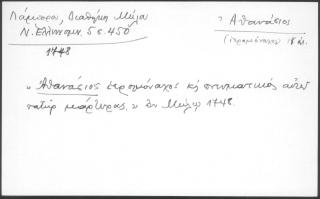 Λάμπρου, Διαθήκη Μήλου
Ν. Ελληνομν. 5 σ. 450
1748
Ἀθανάσιος
(ἱερομόναχος) 18 αἰ.
„ Ἀθανάσιος ἱερομόναχος κὴ πνευματικός αὐτοῦ
πατὴρ μάρτυρας „ Ἐν Μήλῳ 1748.